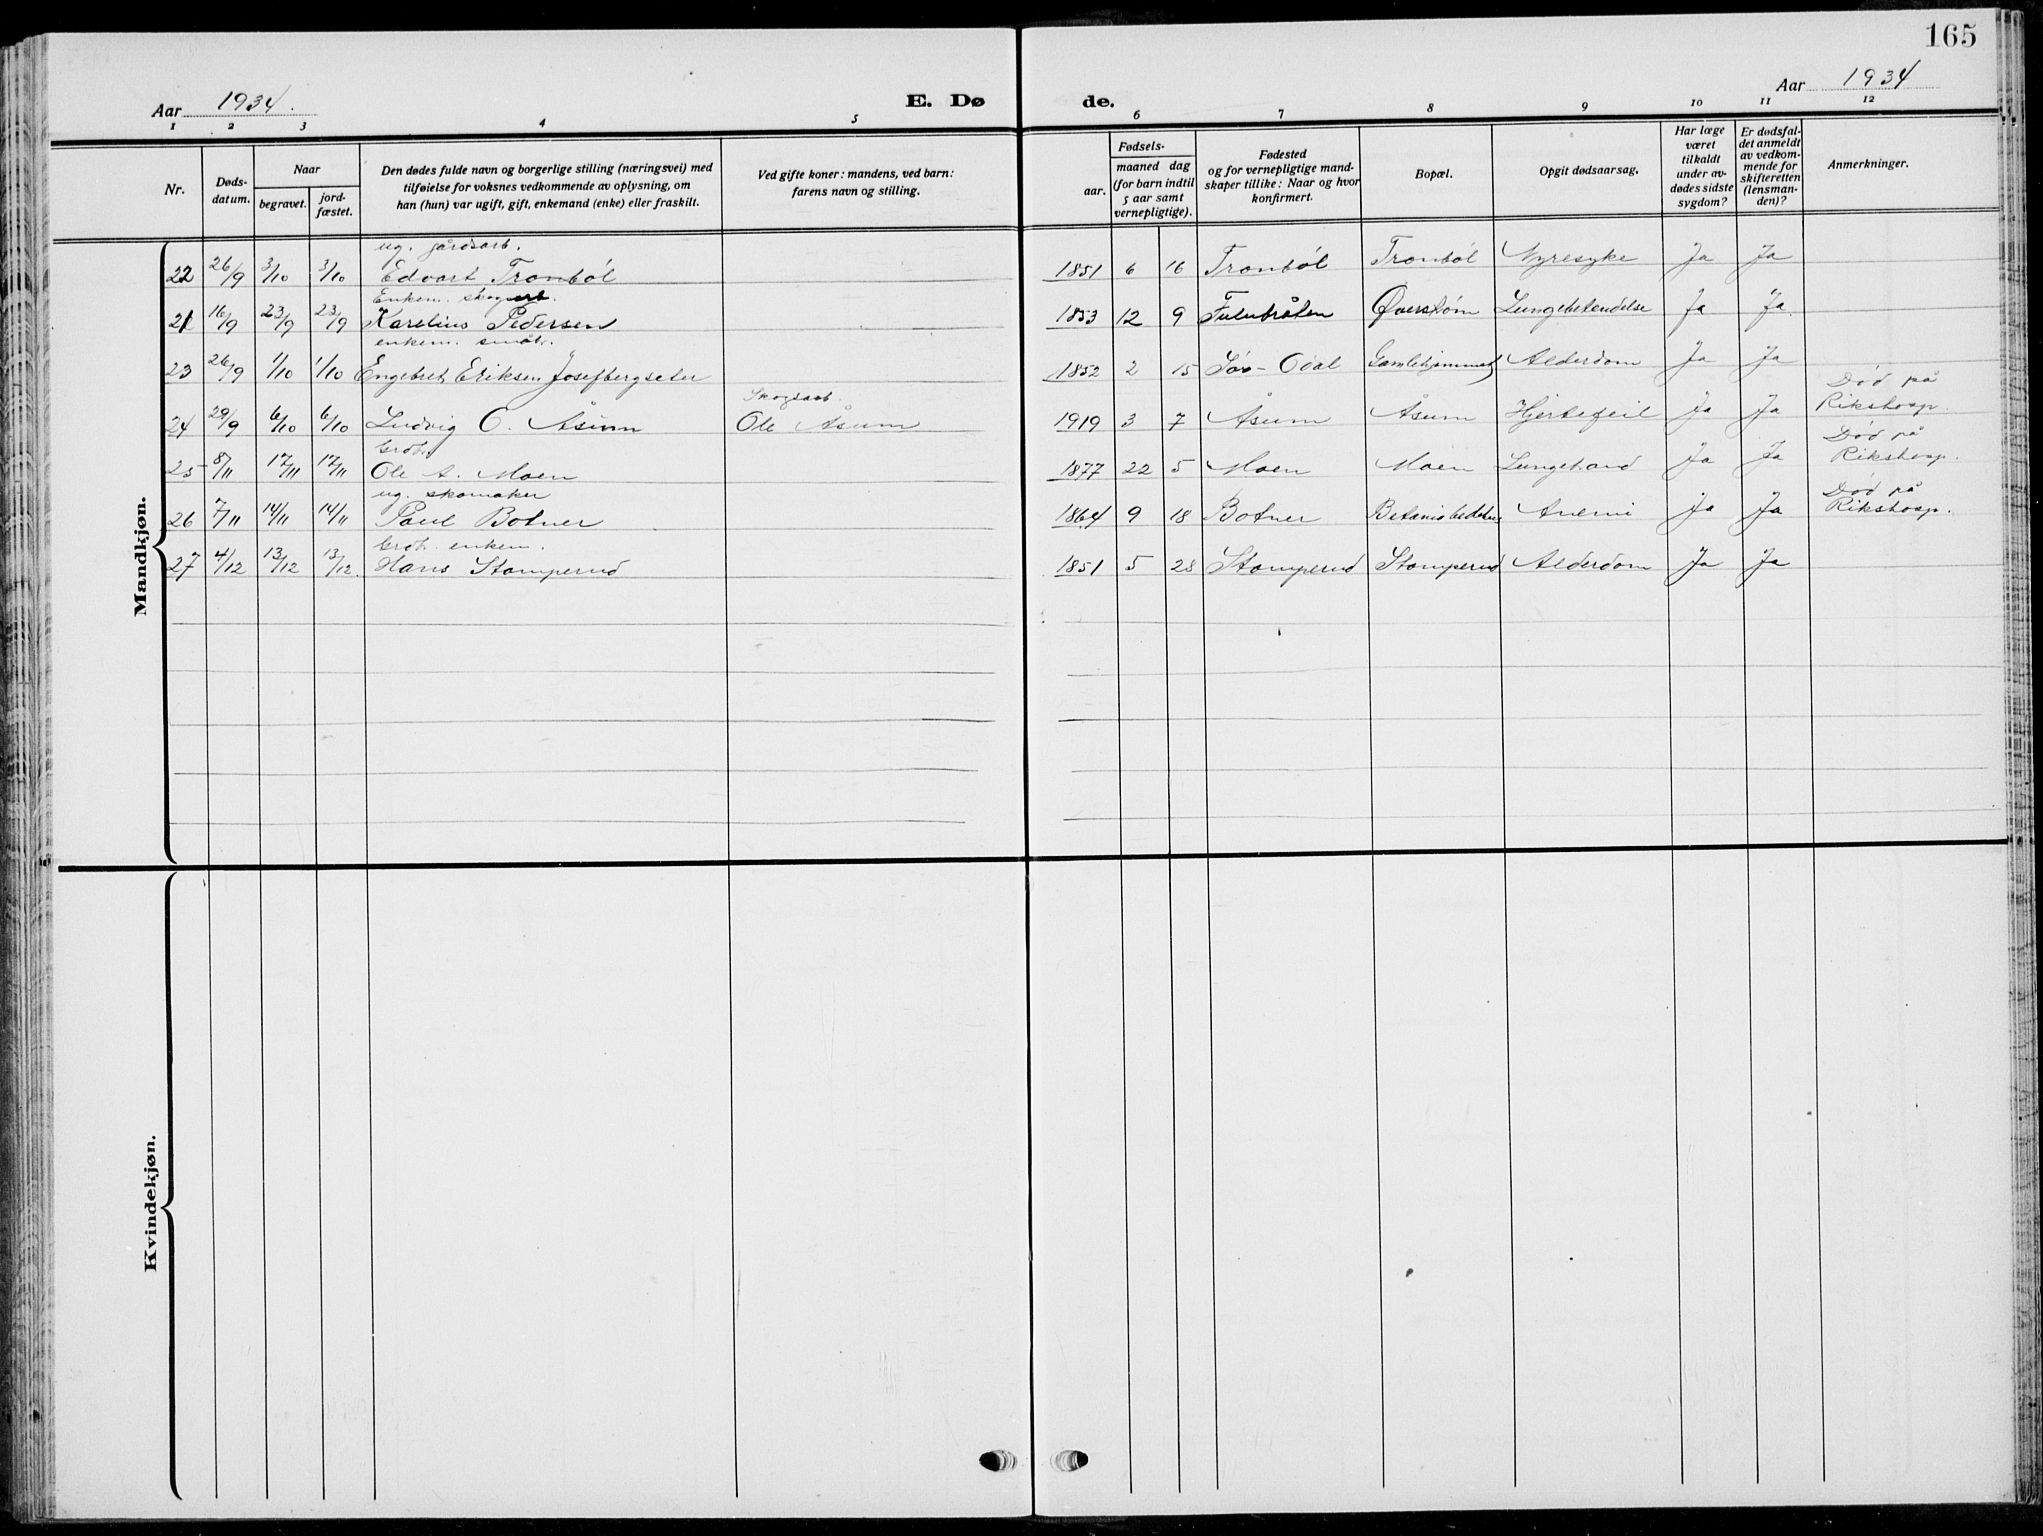 165
Aar 1934.
E. Dø
de.
Aar 1934
1 2 3 4 5 6 7 8 9 10 11 12
Nr.
Døds-
datum.
Naar
begravet.
jord-
fæstet.
Den dødes fulde navn og borgerlige stilling (næringsvei) med
tilføielse for voksnes vedkommende av oplysning, om
han (hun) var ugift, gift, enkemand (enke) eller fraskilt.
Ved gifte koner: mandens, ved barn:
farens navn og stilling.
Fødsels-
aar.
maaned dag
(for barn indtil
5 aar samt
vernepligtige).
Fødested
og for vernepligtige mand-
skaper tillike: Naar og hvor
konfirmert.
Bopæl.
Opgit dødsaarsag.
Har læge
været
tilkaldt
under av-
dødes sidste
sygdom?
Er dødsfal-
det anmeldt
av vedkom-
mende for
skifteretten
(lensman-
den)?
Anmerkninger.
Mandkjøn.
ug. gårdsarb.
22 26/9 3/10 3/10 Edvart Trombøl 1851 6 16 Trombøl Trombøl Nyresyke Ja Ja
Enkem. skogsarb.
21 16/9 23/9 23/9 Karelius Pedersen 1853 12 9 Øverstøm Lungebetendelse Ja Ja
enkem. småbr.
23 26/9 1/10 1/10 Engebret Eriksen Josefbergseter 1852 2 15 Sør-Odal Gamlehjemmet Alderdom Ja Ja
Skogsarb. Død på
24 29/9 6/10 6/10 Ludvig O. Åsum Ole Åsum 1919 3 7 Åsum Åsum Hjertefeil Ja Ja Rikshosp.
Grdbr. Død på
25 8/11 17/11 17/11 Ole A. Moen 1877 22 5 Moen Moen Ja Ja Rikshosp.
ug. skomaker Død på
26 7/11 14/11 14/11 Paul Botner 1864 9 18 Botner Anemi Ja Ja Rikshosp.
enkem.
27 4/12 13/12 13/12. Hans Stomperud 1851 5 28 Stomperud Stomperud Alderdom Ja Ja
Kvindekjøn.